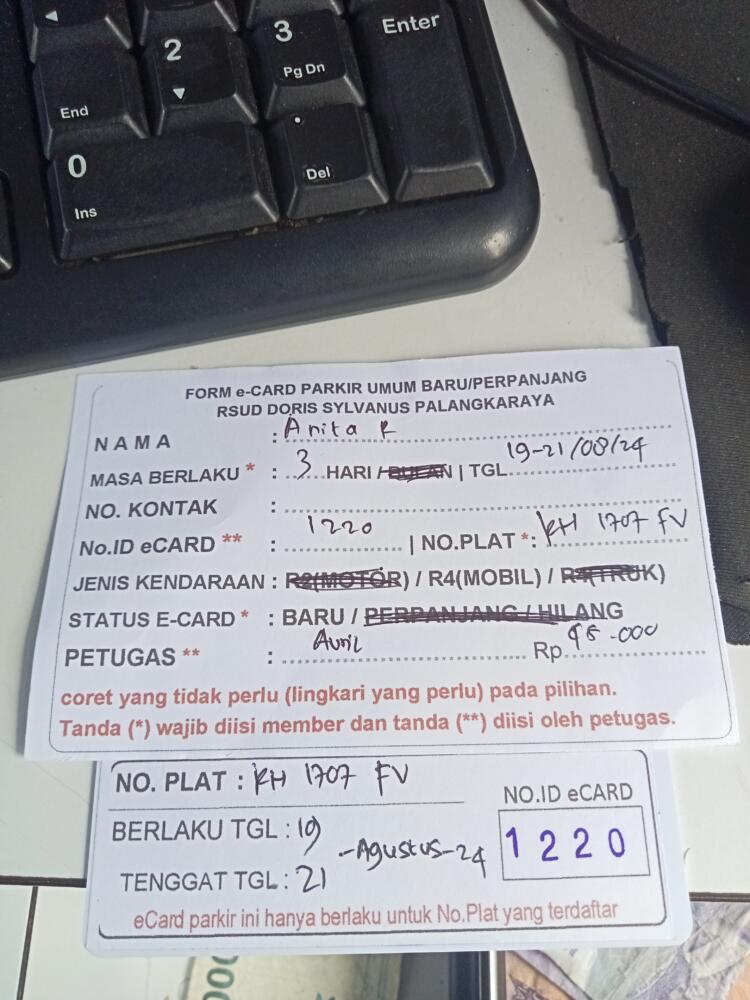 Enter
3
Pg Dn
2
End
Del
0
Ins
FORM e-CARD PARKIR UMUM BARU/PERPANJANG
RSUD DORIS SYLVANUS PALANGKARAYA
NAMA : Anita R
MASA BERLAKU * : 3 HARI / BULAN | TGL 19-21/08/24
NO. KONTAK :
No.ID eCARD ** : 1220 | NO.PLAT *: KH 1707 FV
JENIS KENDARAAN : R2(MOTOR) / R4(MOBIL) / R4(TRUK)
STATUS E-CARD * : BARU / PERPANJANG / HILANG
PETUGAS ** : Avril Rp .000
coret yang tidak perlu (lingkari yang perlu) pada pilihan.
Tanda (*) wajib diisi member dan tanda (**) diisi oleh petugas.
NO. PLAT : KH 1707 FV
NO.ID eCARD
1220
BERLAKU TGL : 19
-Agustus-24
TENGGAT TGL : 21
eCard parkir ini hanya berlaku untuk No.Plat yang terdaftar